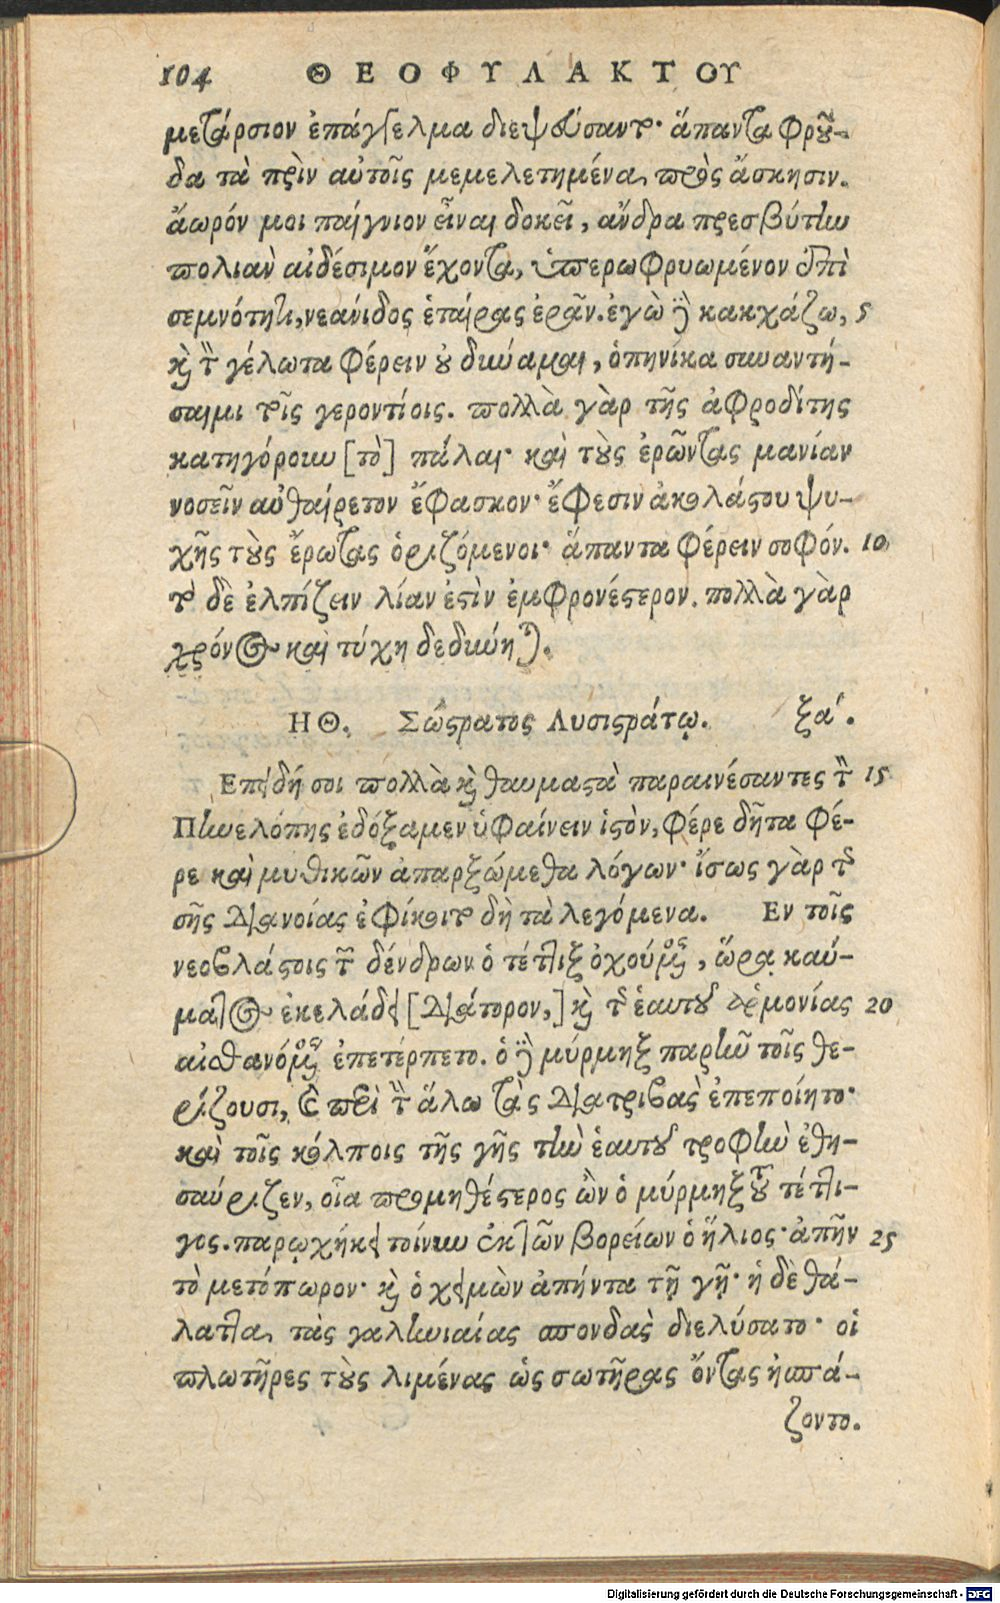 104 ΘΕΟΦΥΛΑΚΤΟΥ
μετάρσιον ἐπάγγελμα διεψεύσαντο· ἅπαντα φροῦ-
δα τὰ πρὶν αὐτοῖς μεμελετημένα πρὸς ἄσκησιν.
ἄωρόν μοι παίγνιον εἶναι δοκεῖ, ἄνδρα πρεσβύτην
πολιὰν αἰδέσιμον ἔχοντα, ὑπερωφρυωμένον ἐπὶ
σεμνότητι, νεάνιδος ἑταίρας ἐρᾶν. ἐγὼ δὲ κακχάζω, 5
καὶ τὸν γέλωτα φέρειν οὐ δύναμαι, ὁπηνίκα συναντή-
σαιμι τοῖς γεροντίοις. πολλὰ γὰρ τῆς ἀφροδίτης
κατηγόρουν [τὸ] πάλαι· καὶ τοὺς ἐρῶντας μανίαν
νοσεῖν αὐθαίρετον ἔφασκον· ἔφεσιν ἀκολάστου ψυ-
χῆς τοὺς ἔρωτας ὁριζόμενοι· ἅπαντα φέρειν σοφόν. 10
τὸ δὲ ἐλπίζειν λίαν ἐστὶν ἐμφρονέστερον. πολλὰ γὰρ
χρόνος καὶ τύχη δεδύνηται.
ΗΘ. Σώστρατος Λυσιστράτῳ. ξα΄.
Επειδή σοι πολλὰ καὶ θαυμαστὰ παραινέσαντες τὸν 15
Πηνελόπης ἐδόξαμεν ὑφαίνειν ἱστὸν, φέρε δῆτα φέ-
ρε καὶ μυθικῶν ἀπαρξώμεθα λόγων· ἴσως γὰρ τῆς
σῆς διανοίας ἐφίκοιτο δὴ τὰ λεγόμενα. Εν τοῖς
νεοβλάστοις τῶν δένδρων ὁ τέττιξ ὀχούμενος, ὥρᾳ καύ-
ματος ἐκελάδει [διάτορον,] καὶ τῆς ἑαυτοῦ ἁρμονίας 20
αἰσθανόμενος ἐπετέρπετο. ὁ δὲ μύρμηξ παρῆν τοῖς θε-
ρίζουσι, καὶ περὶ τὴν ἅλω τὰς διατριβὰς ἐπεποίητο·
καὶ τοῖς κόλποις τῆς γῆς τὴν ἑαυτοῦ τροφὴν ἐθη-
σαύριζεν, οἷα προμηθέστερος ὢν ὁ μύρμηξ τοῦ τέττι-
γος. παρῳχήκει τοίνυν ἐκ τῶν βορείων ὁ ἥλιος· ἀπῆν 25
τὸ μετόπωρον· καὶ ὁ χειμὼν ἀπήντα τῇ γῇ· ἡ δὲ θά-
λαττα, τὰς γαλην̣ιαίας σπονδὰς διελύσατο· οἱ
πλωτῆρες τοὺς λιμένας ὡς σωτῆρας ὄντας ἠσπά-
ζοντο.
Digitalisierung gefördert durch die Deutsche Forschungsgemeinschaft - DFG